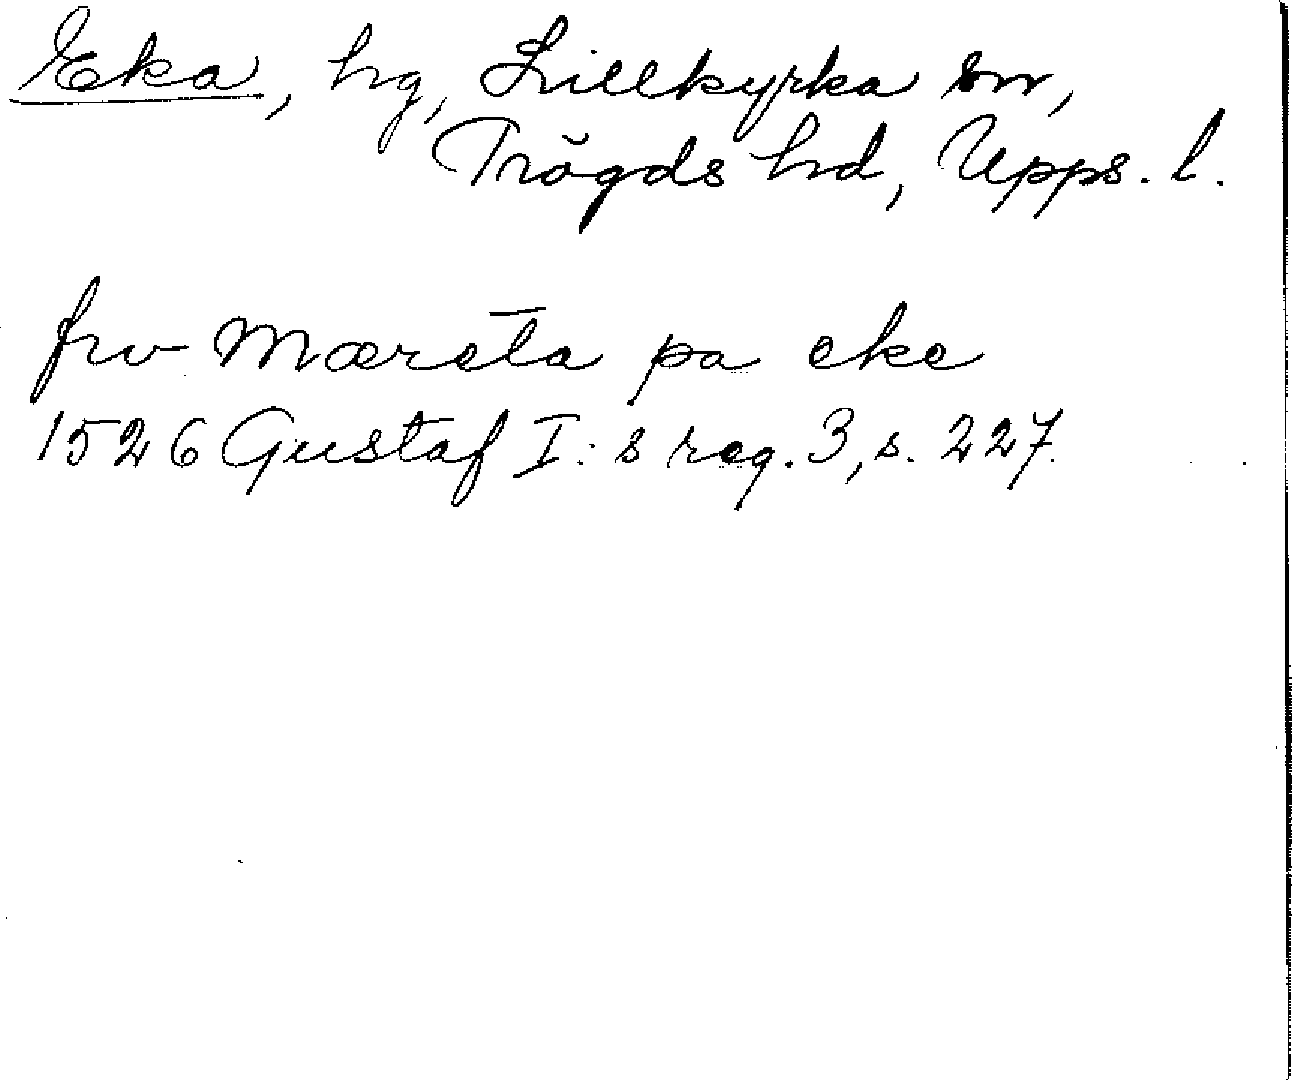 Eka, hg, Lillkyrka sn,
Trögds hd, Upps. l.
frv Mæreta pa eke
1526 Gustaf I:s reg. 3, s. 227.